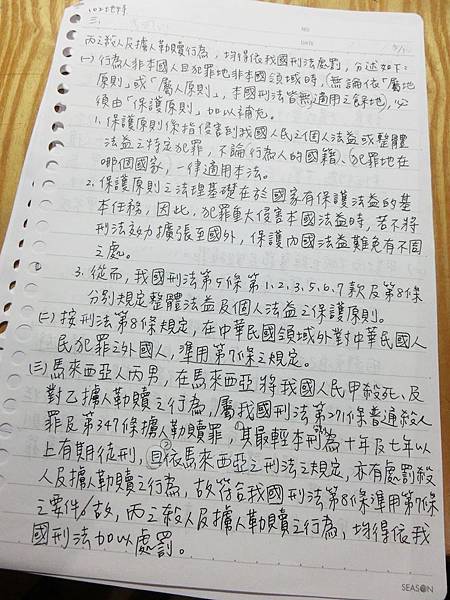 102地特
NO
三、
DATE
丙之殺人及擄人勒贖行為，均得依我國刑法處罰，分述如下：
(一)行為人非本國人且犯罪地非本國領域時，(無論依「屬地
原則」或「屬人原則」，本國刑法皆無適用之餘地)，必
須由「保護原則」加以補充。
1.保護原則係指侵害到我國人民之個人法益或整體
法益之特定犯罪，不論行為人的國籍、犯罪地在
哪個國家，一律適用本法。
2.保護原則之法理基礎在於國家有保護法益的基
本任務，因此，犯罪重大侵害本國法益時，若不將
刑法效力擴張至國外，保護內國法益難免有不周
之處。
3.從而，我國刑法第5條第1、2、3、5、6、7款及第8條
分別規定整體法益及個人法益之保護原則。
(二)按刑法第8條規定，在中華民國領域外對中華民國人
民犯罪之外國人，準用第7條之規定。
(三)馬來西亞人丙男，在馬來西亞將我國人民甲殺死、及
對乙擄人勒贖之行為，屬我國刑法第271條普通殺人
罪及第347條擄人勒贖罪，其最輕本刑為十年及七年以
上有期徒刑，且依馬來西亞之刑法之規定，亦有處罰殺
人及擄人勒贖之行為，故符合我國刑法第8條準用第7條
之要件/故，丙之殺人及擄人勒贖之行為，均得依我
國刑法加以處罰。
SEASON